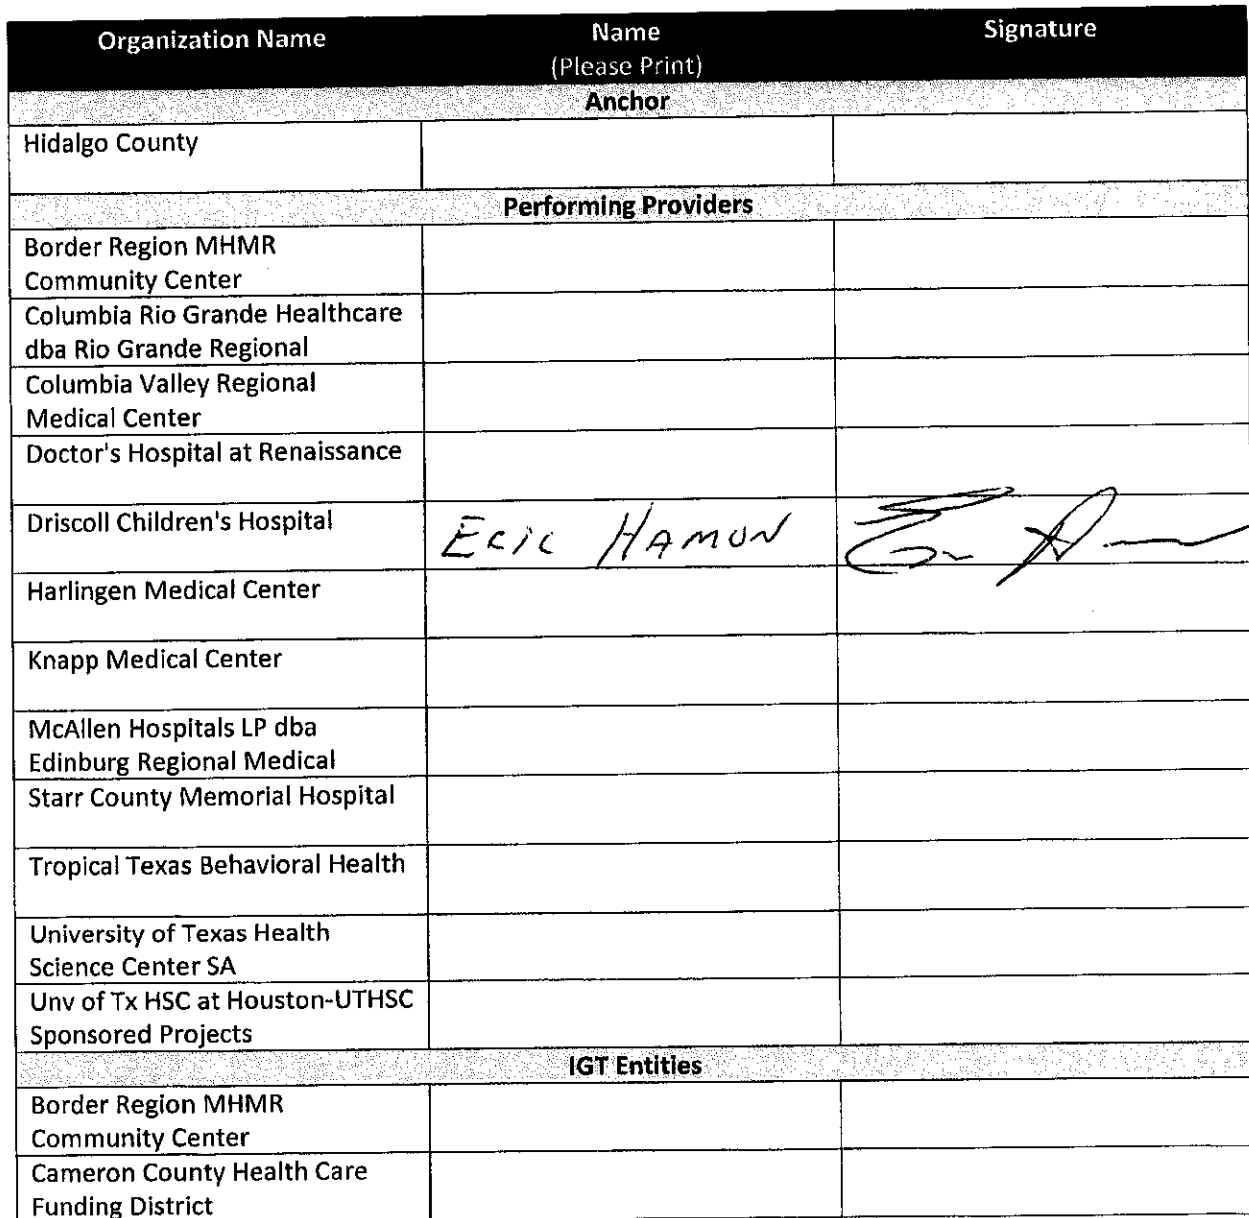 Organization Name Name Signature
(Please Print)
Anchor
Hidalgo County
Performing Providers
Border Region MHMR
Community Center
Columbia Rio Grande Healthcare
dba Rio Grande Regional
Columbia Valley Regional
Medical Center
Doctor's Hospital at Renaissance
Driscoll Children's Hospital ERIC HAMON
Harlingen Medical Center
Knapp Medical Center
McAllen Hospitals LP dba
Edinburg Regional Medical
Starr County Memorial Hospital
Tropical Texas Behavioral Health
University of Texas Health
Science Center SA
Unv of Tx HSC at Houston-UTHSC
Sponsored Projects
IGT Entities
Border Region MHMR
Community Center
Cameron County Health Care
Funding District